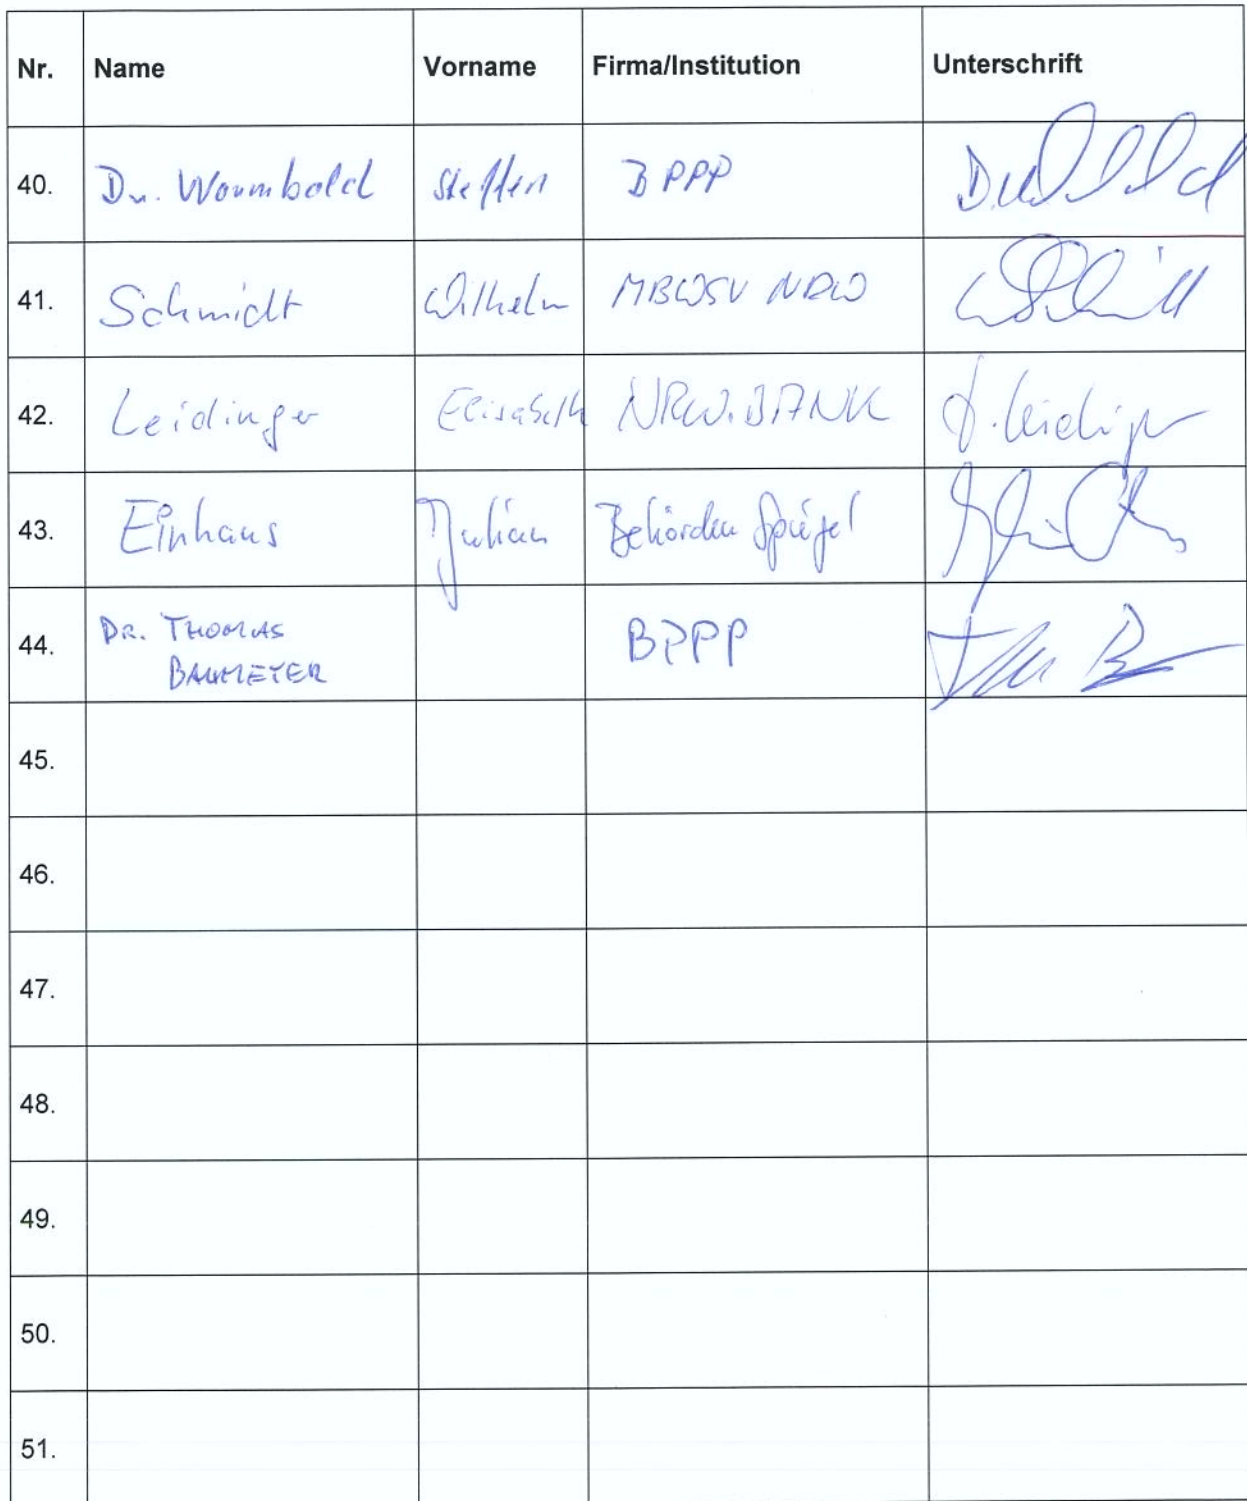 Nr. Name Vorname Firma/Institution Unterschrift
40. Dr. Warmbold Steffen BPPP
41. Schmidt Wilhelm MBWSV NRW
42. Leidinger Elisabeth NRW.BANK
43. Einhaus Julian Behörden Spiegel
44. DR. THOMAS BPPP
BAUMEYER
45.
46.
47.
48.
49.
50.
51.